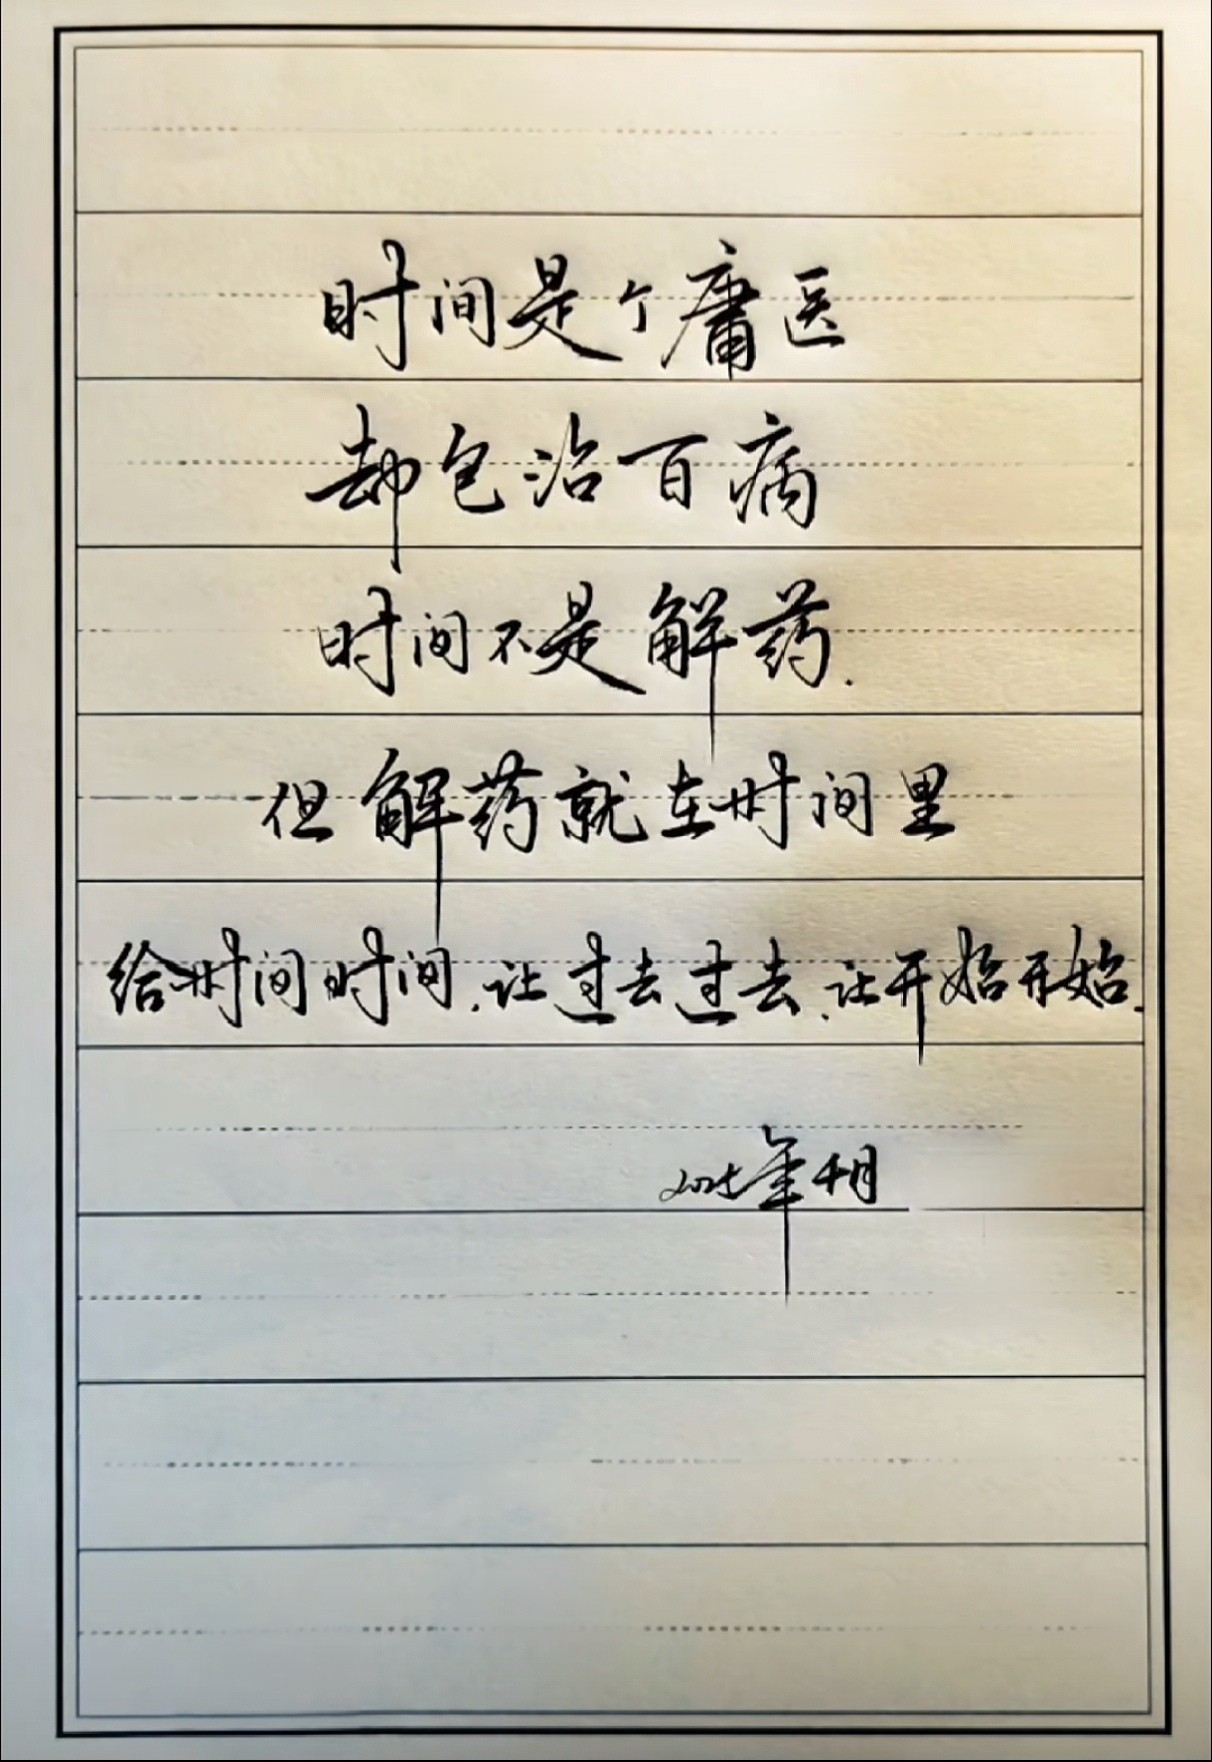 时间是个庸医
却包治百病
时间不是解药.
但解药就在时间里
给时间时间.让过去过去.让开始开始.
年 月